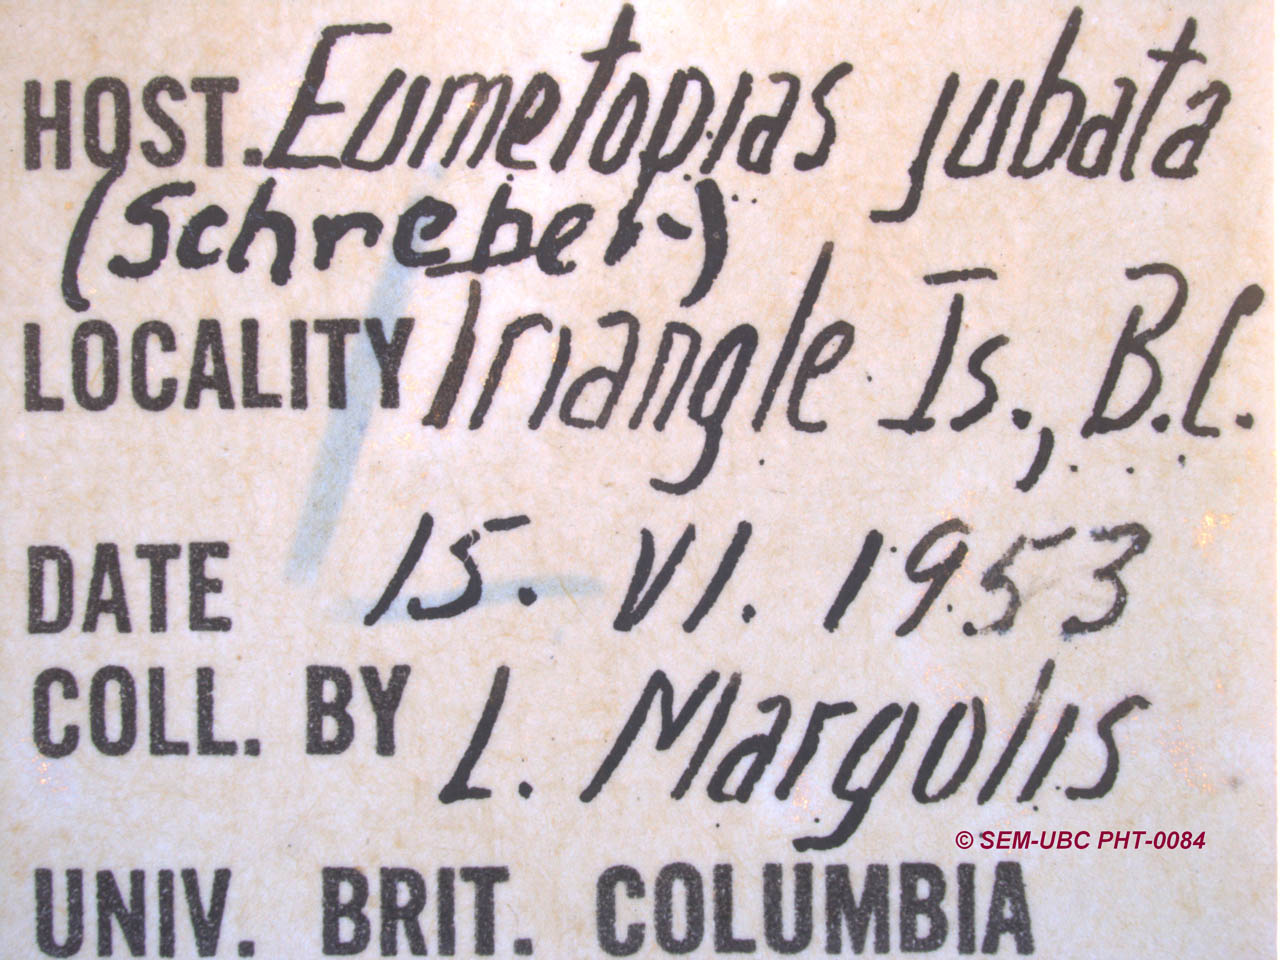 HOST. Eumetopias jubata
(Schreber)
LOCALITY Triangle Is., B.C.
DATE 15. VI. 1953
COLL. BY L. Margolis
© SEM-UBC PHT-0084
UNIV. BRIT. COLUMBIA